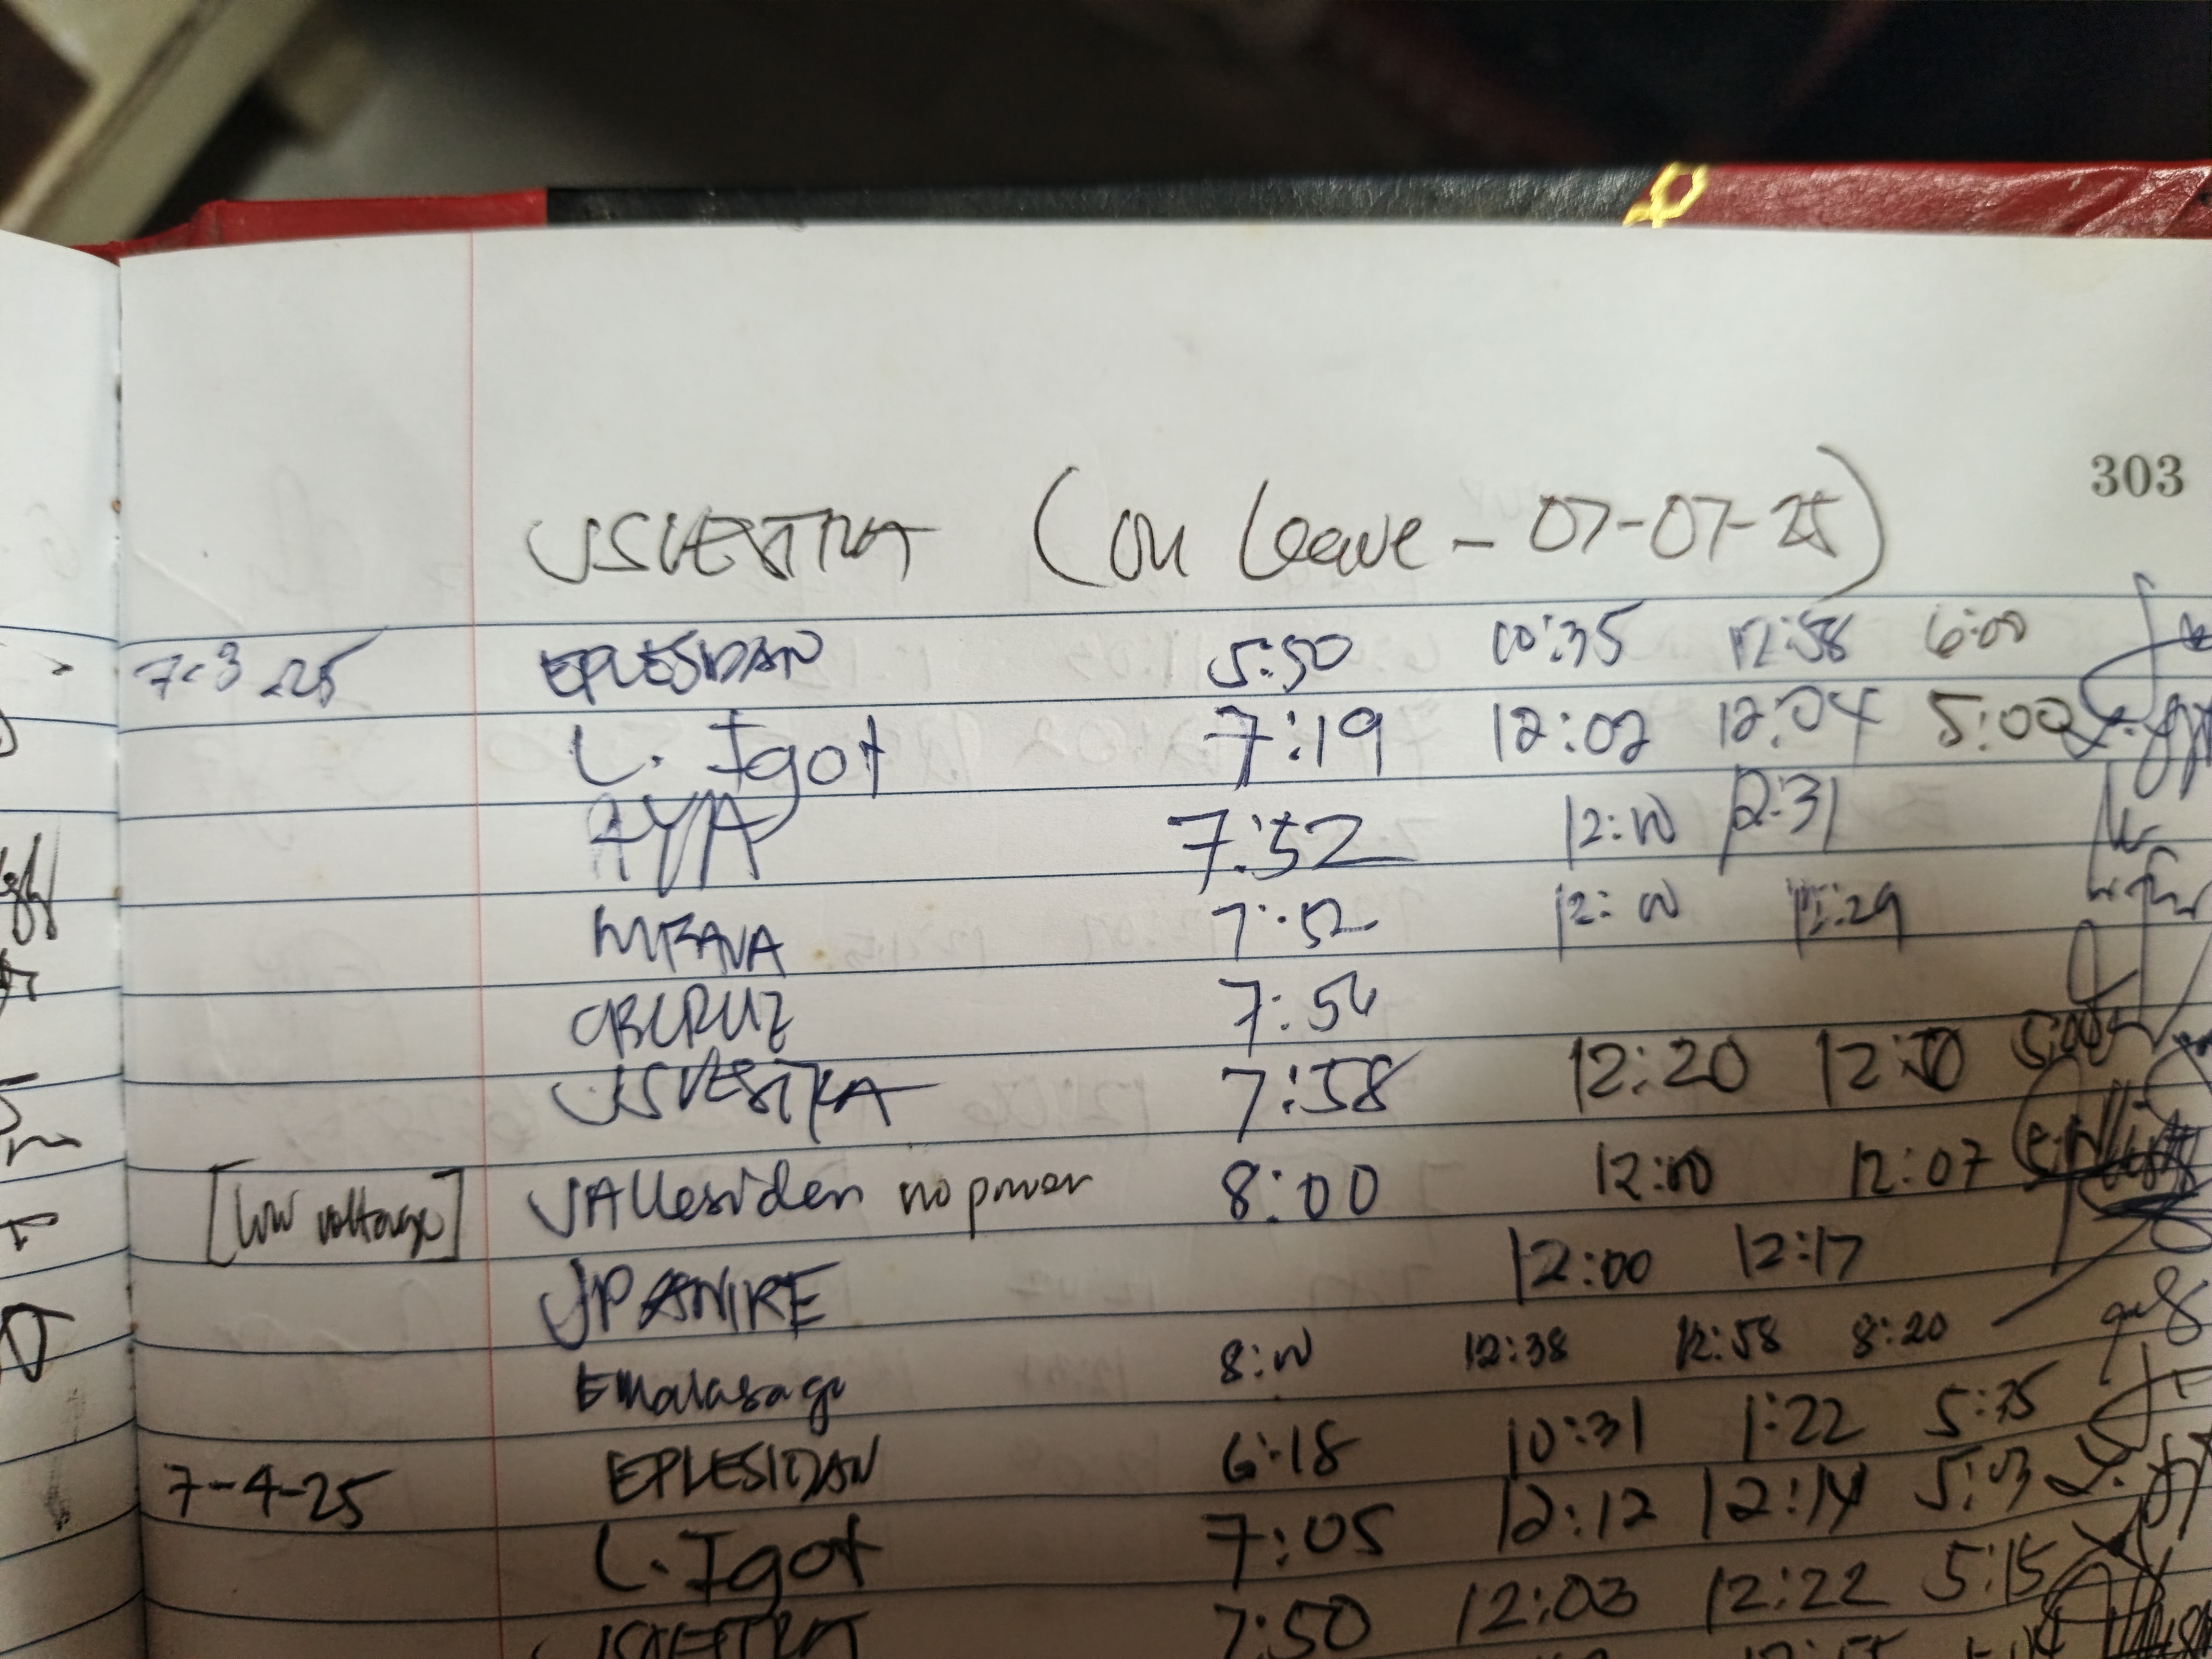 303
JSVESTRA (on leave - 07-07-25)
7-3-25 EPLESIDAN 5:50 10:35 12:58 6:00
L. Igot 7:19 12:02 12:04 5:00
AYA 7:52 12:00 12:31
7:52 12:00 12:29
CBCRUZ 7:56
JSVESTRA 7:58 12:20 12:50 5:00
[low voltage] JAllesiden no power 8:00 12:00 12:07
JPANIRE 12:00 12:17
Emalasaga 8:00 12:38 12:58 8:20
7-4-25 EPLESIDAN 6:18 10:31 1:22 5:35
L. Igot 7:05 12:12 12:14 5:03
JSVESTRA 7:50 12:03 12:22 5:15